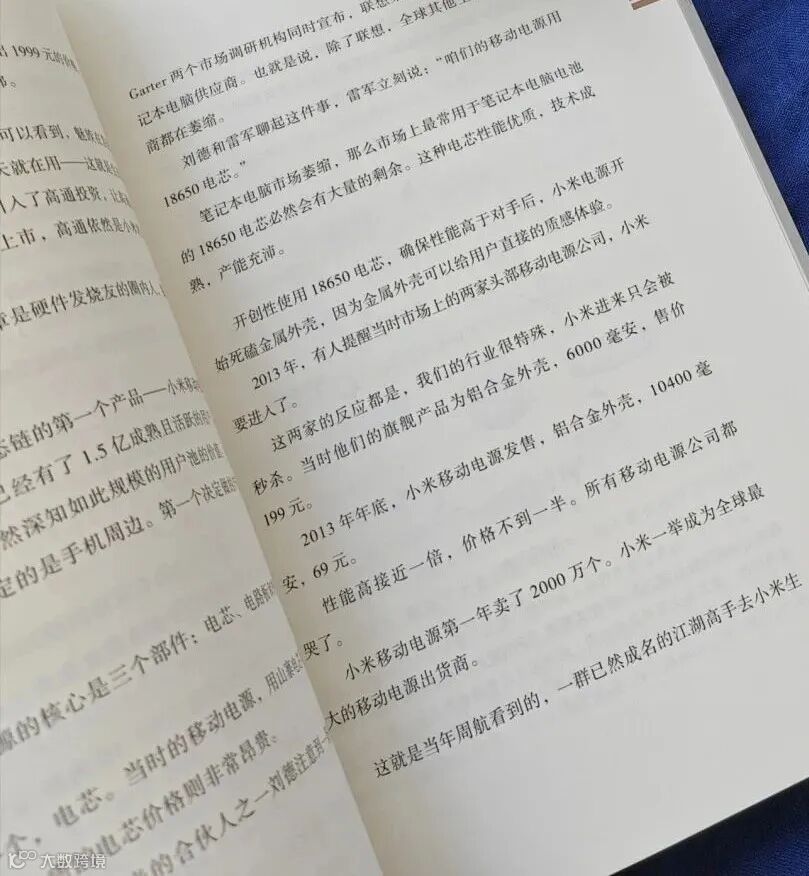 1999 元的价
可以看到，魅族在
天就在用——这就是
引入了高通投资，让
上市，高通依然是小米
章是硬件发烧友的圈内人
态链的第一个产品——小米移动
已经有了 1.5 亿成熟且活跃的用户
然深知如此规模的用户池的价值
定的是手机周边。第一个决定做的
源的核心是三个部件：电芯、电路板
个，电芯。当时的移动电源，用山寨
电芯价格则非常昂贵。
的合伙人之一刘德注意到一
Garter 两个市场调研机构同时宣布，联想
记本电脑供应商。也就是说，除了联想，全球其他
商都在萎缩。
刘德和雷军聊起这件事，雷军立刻说：“咱们的移动电源用
18650 电芯。”
笔记本电脑市场萎缩，那么市场上最常用于笔记本电脑电池
的 18650 电芯必然会有大量的剩余。这种电芯性能优质，技术成
熟，产能充沛。
开创性使用 18650 电芯，确保性能高于对手后，小米电源开
始死磕金属外壳，因为金属外壳可以给用户直接的质感体验。
2013 年，有人提醒当时市场上的两家头部移动电源公司，小米
要进入了。
这两家的反应都是，我们的行业很特殊，小米进来只会被
秒杀。当时他们的旗舰产品为铝合金外壳，6000 毫安，售价
199 元。
2013 年年底，小米移动电源发售，铝合金外壳，10400 毫
安，69 元。
性能高接近一倍，价格不到一半。所有移动电源公司都
哭了。
小米移动电源第一年卖了 2000 万个。小米一举成为全球最
大的移动电源出货商。
这就是当年周航看到的，一群已然成名的江湖高手去小米生
大数跨境